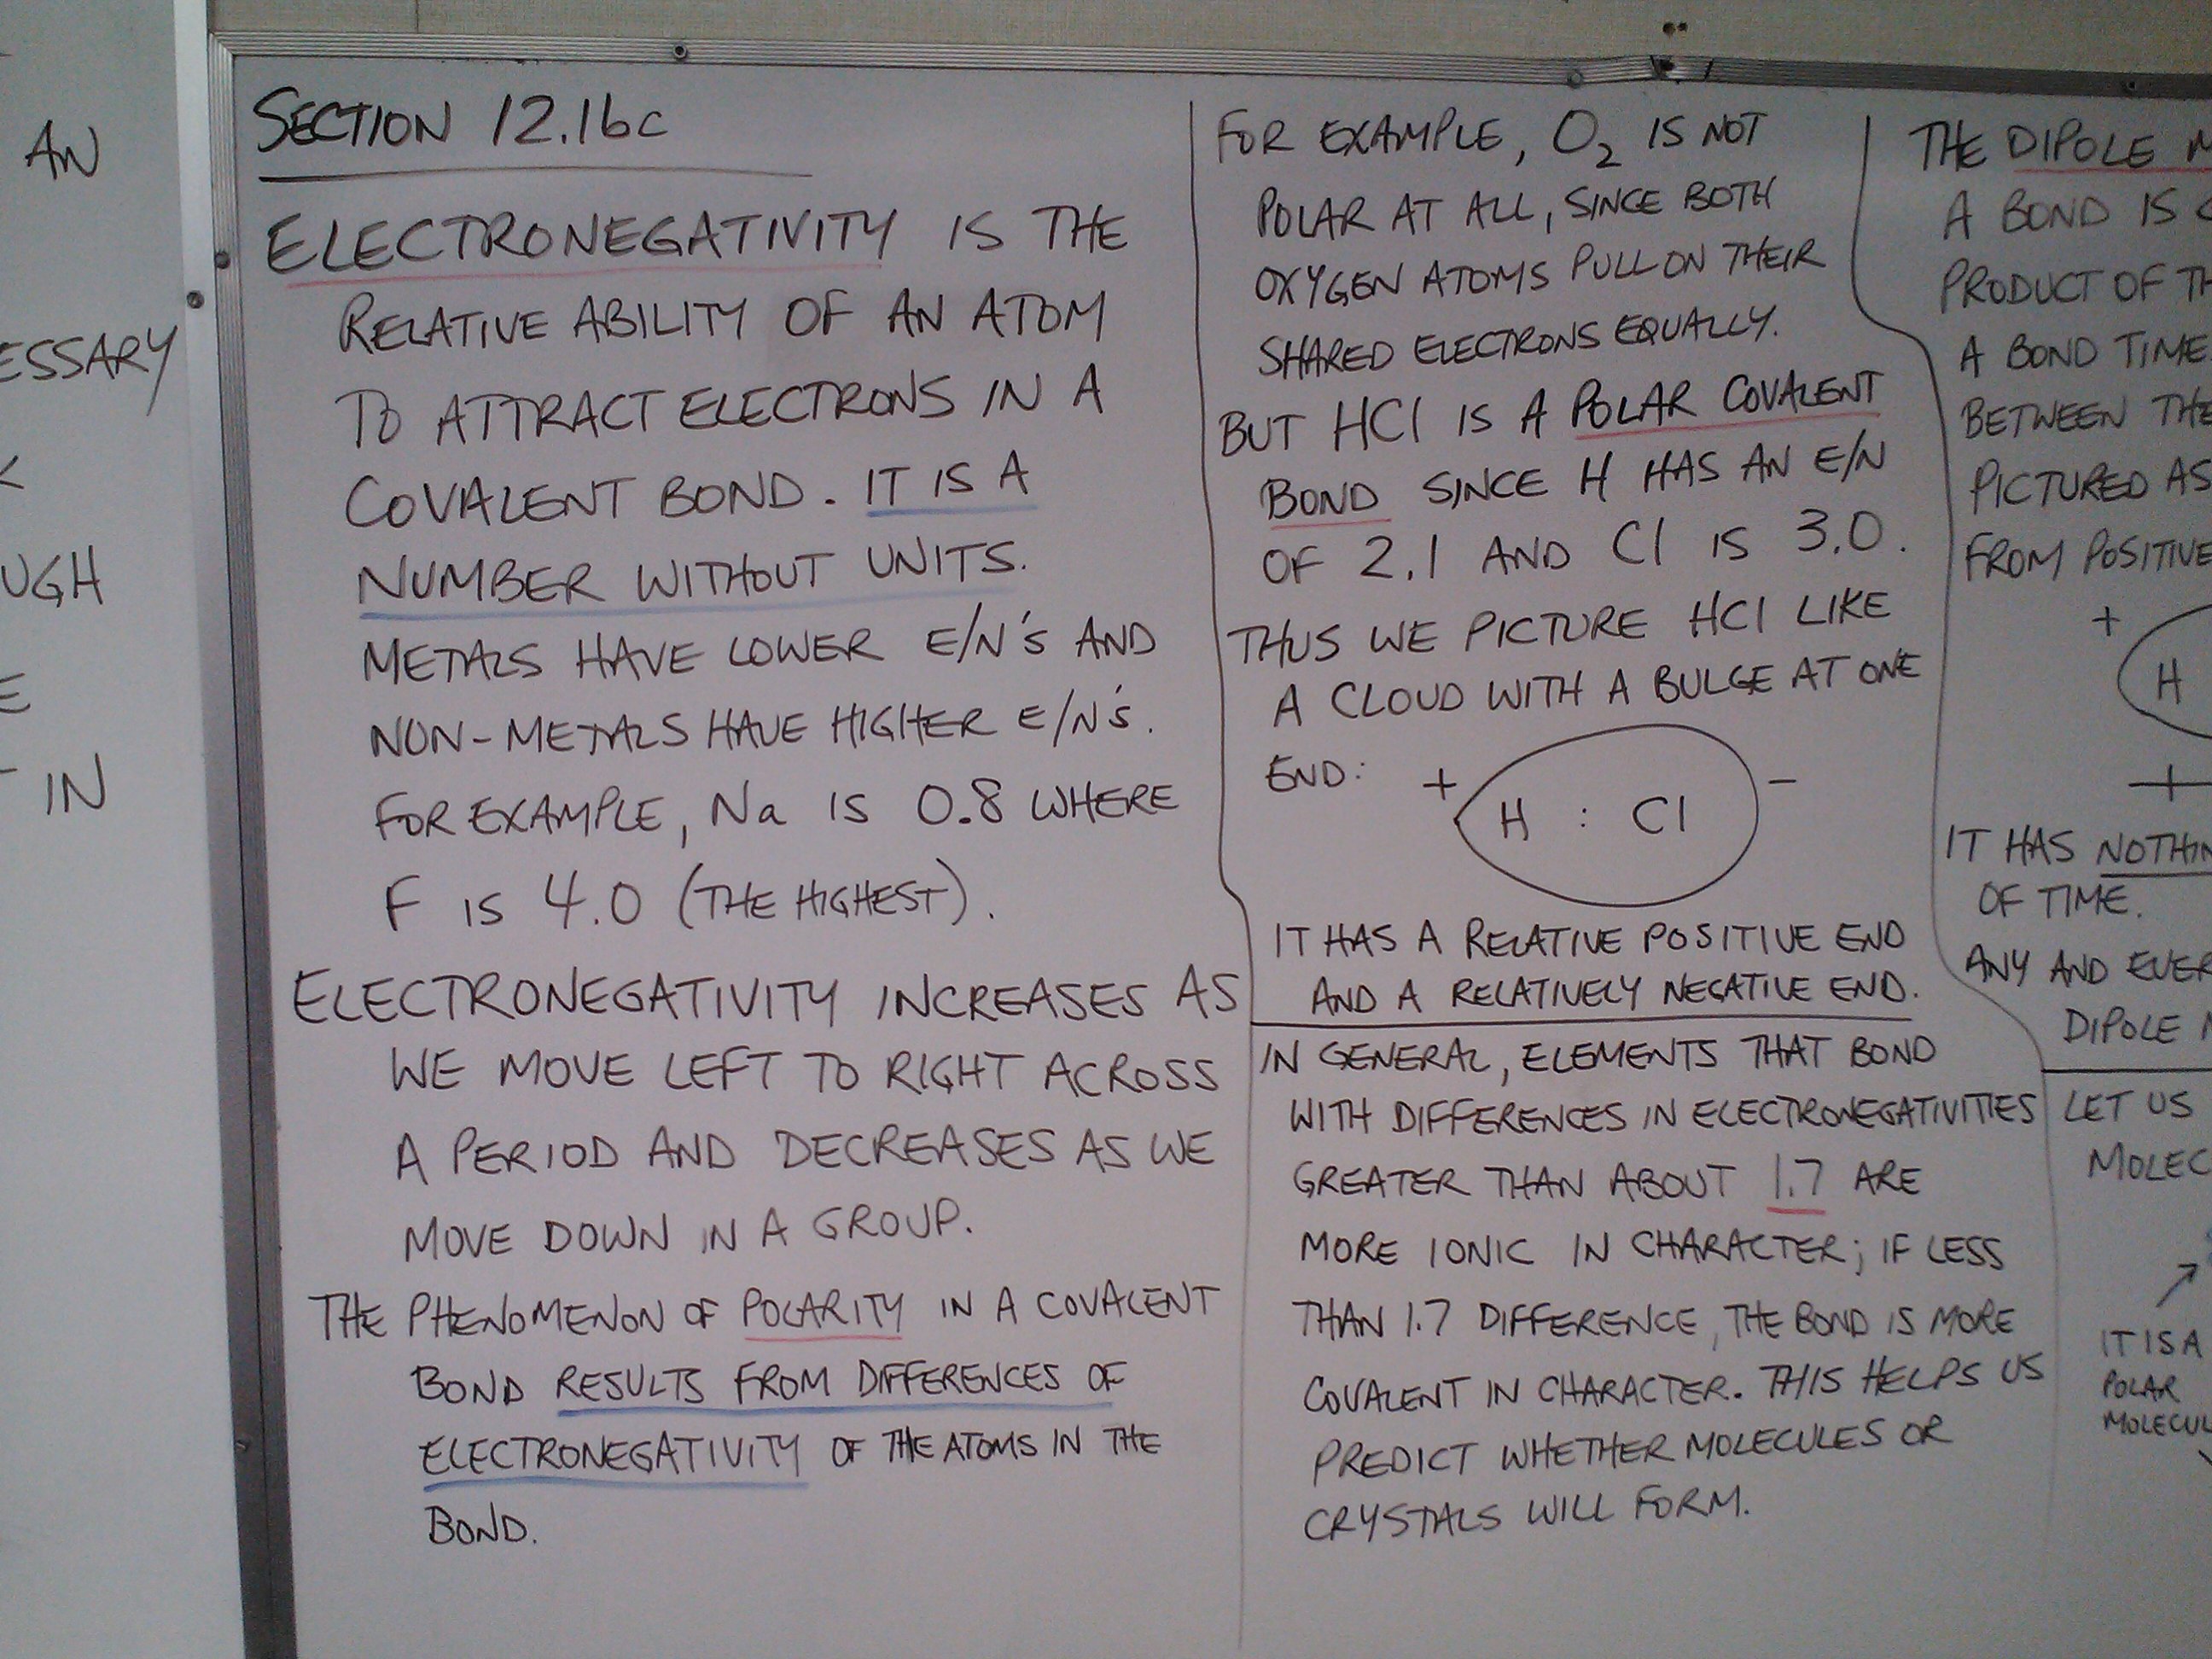 AN
ESSARY
UGH
E
IN
SECTION 12.1bc
ELECTRONEGATIVITY IS THE
RELATIVE ABILITY OF AN ATOM
TO ATTRACT ELECTRONS IN A
COVALENT BOND. IT IS A
NUMBER WITHOUT UNITS.
METALS HAVE LOWER E/N'S AND
NON-METALS HAVE HIGHER E/N'S.
FOR EXAMPLE, Na IS 0.8 WHERE
F IS 4.0 (THE HIGHEST).
ELECTRONEGATIVITY INCREASES AS
WE MOVE LEFT TO RIGHT ACROSS
A PERIOD AND DECREASES AS WE
MOVE DOWN IN A GROUP.
THE PHENOMENON OF POLARITY IN A COVALENT
BOND RESULTS FROM DIFFERENCES OF
ELECTRONEGATIVITY OF THE ATOMS IN THE
BOND.
FOR EXAMPLE, O₂ IS NOT
POLAR AT ALL, SINCE BOTH
OXYGEN ATOMS PULL ON THEIR
SHARED ELECTRONS EQUALLY.
BUT HCl IS A POLAR COVALENT
BOND SINCE H HAS AN E/N
OF 2.1 AND Cl IS 3.0.
THUS WE PICTURE HCl LIKE
A CLOUD WITH A BULGE AT ONE
END: + H : Cl −
IT HAS A RELATIVE POSITIVE END
AND A RELATIVELY NEGATIVE END.
IN GENERAL, ELEMENTS THAT BOND
WITH DIFFERENCES IN ELECTRONEGATIVITIES
GREATER THAN ABOUT 1.7 ARE
MORE IONIC IN CHARACTER; IF LESS
THAN 1.7 DIFFERENCE, THE BOND IS MORE
COVALENT IN CHARACTER. THIS HELPS US
PREDICT WHETHER MOLECULES OR
CRYSTALS WILL FORM.
THE DIPOLE M
A BOND IS
PRODUCT OF TH
A BOND TIME
BETWEEN THE
PICTURED AS
FROM POSITIVE
+
H
IT HAS NOTHIN
OF TIME.
ANY AND EVER
DIPOLE M
LET US
MOLEC
IT IS A
POLAR
MOLECUL